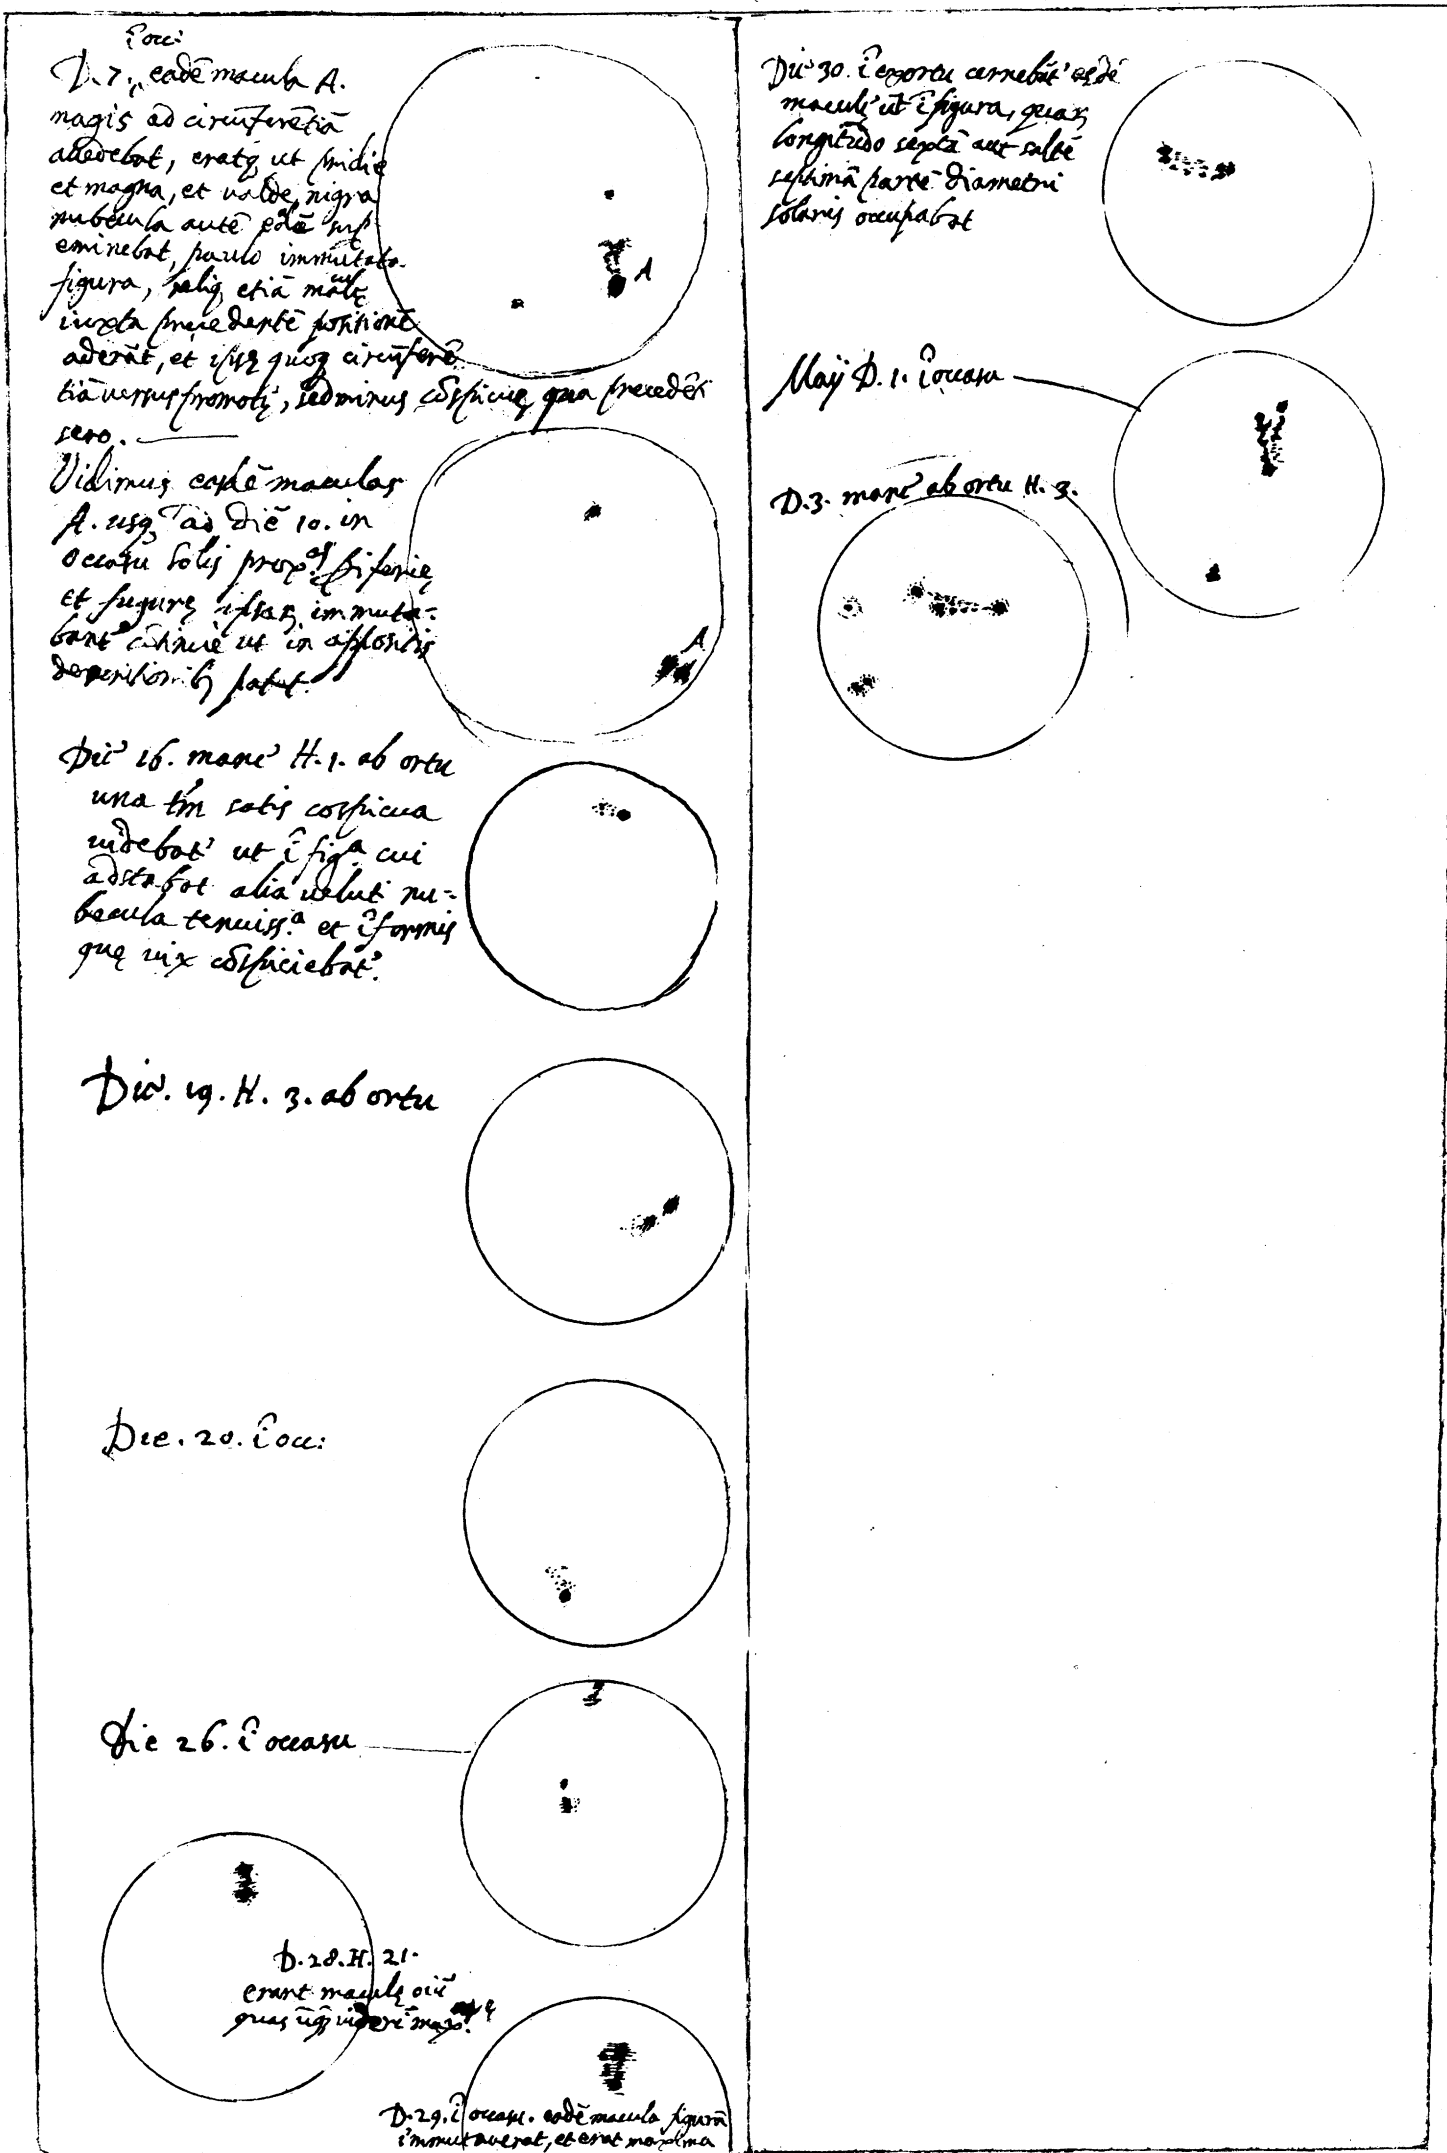 î occ:
D. 7. eadē macula A.
magis ad circūferētiā
accedebat, eratq ut pridie
et magna, et valde nigra
nubecula autē eidē sup
eminebat, paulo immutata
figura, reliq etiā maculę
iuxta precedentē positionē
aderāt, et ipsę quoq circūferē
tiā versus promotę, sed minus cōspicuę qua precedēti
sero.
Vidimus easdē maculas
A. usq ad diē 10. in
occasu solis
et figurę ipsaꝝ immuta-
bant' cōtinuè ut in appositis
patet.
Die 16. mane H. 1. ab ortu
una tm̄ satis cospicua
videbat' ut î fig.ᵃ cui
adstabat alia veluti nu-
becula tenuiss.ᵃ et îformis
quę vix cōspiciebat'.
Die. 19. H. 3. ab ortu
Die. 20. î occ:
Die 26. î occasu
D. 28. H. 21.
erant maculę oiū
quas
D. 29. î occasu. eadē macula figurā
immutaverat, et erat maxima
A
A
Die 30. î exortu cernebāt' eędē
maculę ut î figura, quaꝝ
longitudo sextā aut saltē
septimā partē diametri
solaris occupabat
Maij D. 1. î occasu
D. 3. mane ab ortu H. 3.